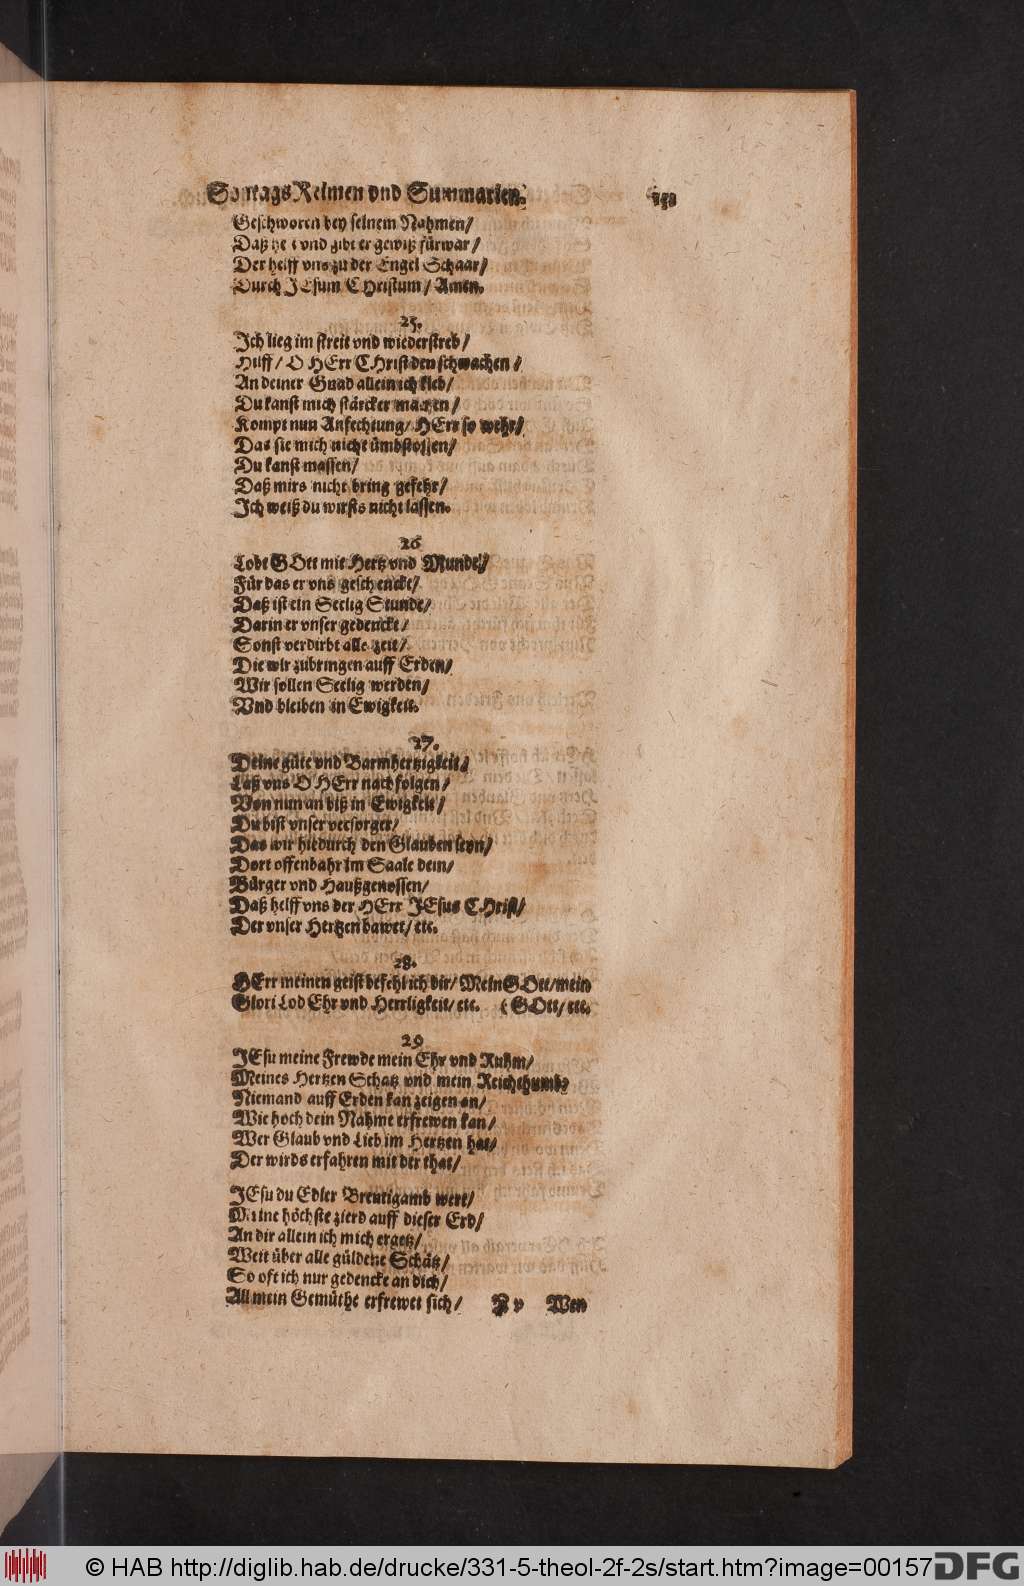 Sontags Reimen vnd Summarien.
Geschworen bey seinem Nahmen/
Daß er vnd gibt er gewiß fürwar/
Der helff vns zu der Engel Schaar/
Durch JEsum CHristum/ Amen.
25.
Ich lieg im streit vnd wiederstreb/
Hilff/ O HErr CHrist den schwachen/
An deiner Gnad allein ich kleb/
Du kanst mich stärcker machen/
Kompt nun Anfechtung/ HErr so wehr/
Das sie mich nicht ümbstossen/
Du kanst massen/
Daß mirs nicht bring gefehr/
Ich weiß du wirsts nicht lassen.
26
Lobt GOtt mit Hertz vnd Munde/
Für das er vns geschencket/
Daß ist ein Seelig Stunde/
Darin er vnser gedencket/
Sonst verdirbt alle zeit/
Die wir zubringen auff Erden/
Wir sollen Seelig werden/
Vnd bleiben in Ewigkeit.
27.
Deine güte vnd Barmhertzigkeit/
Laß vns O HErr nachfolgen/
Von nun an biß in Ewigkeit/
Du bist vnser versorger/
Das wir hiedurch den Glauben seyn/
Dort offenbahr im Saale dein/
Bürger vnd Haußgenossen/
Daß helff vns der HErr JEsus CHrist/
Der vnser Hertzen bawet/ etc.
28.
HErr meinen geist befehl ich dir/ Mein GOtt/ mein
Glori Lob Ehr vnd Herrligkeit/ etc. (GOtt/ etc.
29
JEsu meine Frewde mein Ehr vnd Ruhm/
Meines Hertzen Schatz vnd mein Reichthumb/
Niemand auff Erden kan zeigen an/
Wie hoch dein Nahme erfrewen kan/
Wer Glaub vnd Lieb im Hertzen hat/
Der wirds erfahren mit der that/
JEsu du Edler Breutigamb wert/
Meine höchste zierd auff dieser Erd/
An dir allein ich mich ergetz/
Weit über alle güldene Schätz/
So oft ich nur gedencke an dich/
All mein Gemüthe erfrewet sich/ v Wen
© HAB http://diglib.hab.de/drucke/331-5-theol-2f-2s/start.htm?image=00157
DFG